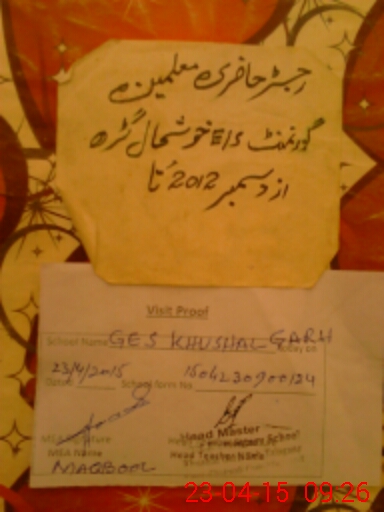 رجسٹر حاضری معلمین
گورنمنٹ E/S خوشحال گڑھ
از دسمبر 2012 تا
Visit Proof
School Name GES KHUSHAL GARH
Today on
23/4/2015 School form No 1504230900124
Head Master
School
Head Teacher Name
MEA Name
MAQBOOL
23-04-15 09:26